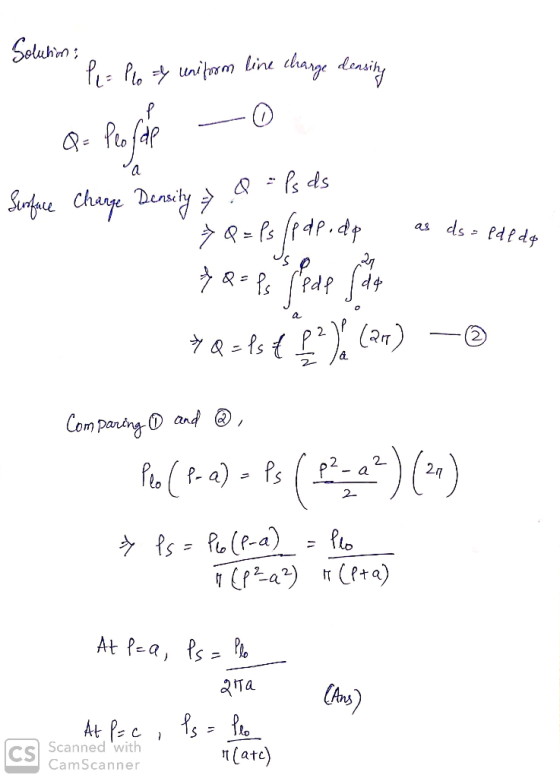 Solution:
ρL = ρlo ⇒ uniform line charge density
Q = ρlo ∫_a^ρ dρ —— ①
Surface Charge Density ⇒ Q = ρs ds
⇒ Q = ρs ∫_s ρdρ.dφ as ds = ρdρdφ
⇒ Q = ρs ∫_a^ρ ρdρ ∫_0^2π dφ
⇒ Q = ρs (ρ²/2)_a^ρ (2π) —— ②
Comparing ① and ②,
ρlo (ρ-a) = ρs ((ρ²-a²)/2) (2π)
⇒ ρs = ρlo(ρ-a)/π(ρ²-a²) = ρlo/π(ρ+a)
At ρ=a, ρs = ρlo/2πa
(Ans)
At ρ=c, ρs = ρlo/π(a+c)
CS Scanned with
CamScanner